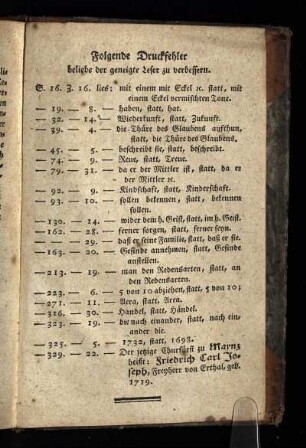 Folgende Druckfehler
beliebe der geneigte Leser zu verbessern.
S. 16. Z. 16. lies: mit einem mit Eckel ꝛc. statt, mit
einem Eckel vermischten Tone.
— 19. — 8. — haben, statt, hat.
— 32. — 14. — Wiederkunft, statt, Zukunft.
— 39. — 4. — die Thüre des Glaubens aufthun,
statt, die Thüre des Glaubens.
— 45. — 5. — beschreibt sie, statt, beschreibt.
— 74. — 9. — Reue, statt, Treue.
— 79. — 31. — da er der Mittler ist, statt, da er
der Mittler ꝛc.
— 92. — 9. — Kindschaft, statt, Kinderschaft.
— 93. — 10. — sollen bekennen, statt, bekennen
sollen.
— 130. — 14. — wider dem h. Geist, statt, im h. Geist.
— 162. — 28. — ferner sorgen, statt, ferner seyn.
— — — 29. — daß er seine Familie, statt, daß er sie.
— 163. — 20. — Gesinde annehmen, statt, Gesinde
anstellen.
— 213. — 19. — man den Redensarten, statt, an
den Redensarten.
— 223. — 6. — 5 von 10 abziehen, statt, 5 von 10;
— 271. — 11. — Aera, statt, Area.
— 316. — 30. — Handel, statt, Händel.
— 323. — 19. — die nach einander, statt, nach ein-
ander die.
— 325. — 5. — 1732, statt, 1698.
— 329. — 22. — Der jetzige Churfürst zu Maynz
heißt: Friedrich Carl Jo-
seph, Freyherr von Erthal, geb.
1719.